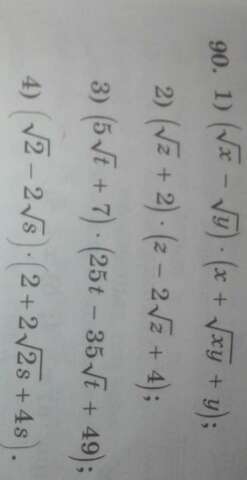 90. 1) (√x − √y) · (x + √xy + y);
2) (√z + 2) · (z − 2√z + 4);
3) (5√t + 7) · (25t − 35√t + 49);
4) (√2 − 2√s) · (2 + 2√2s + 4s).